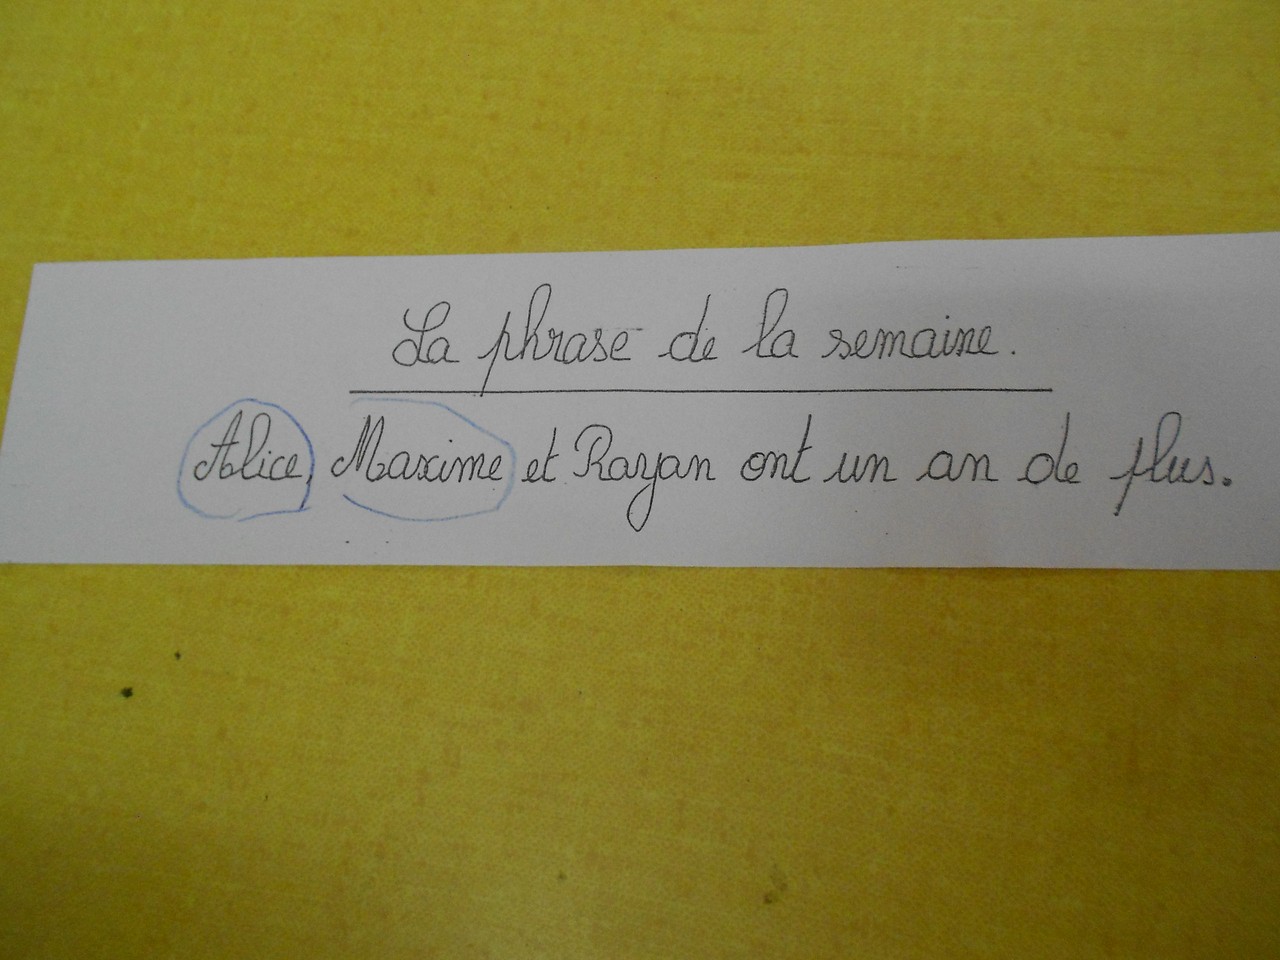 La phrase de la semaine.
Alice, Maxime et Rayan ont un an de plus.